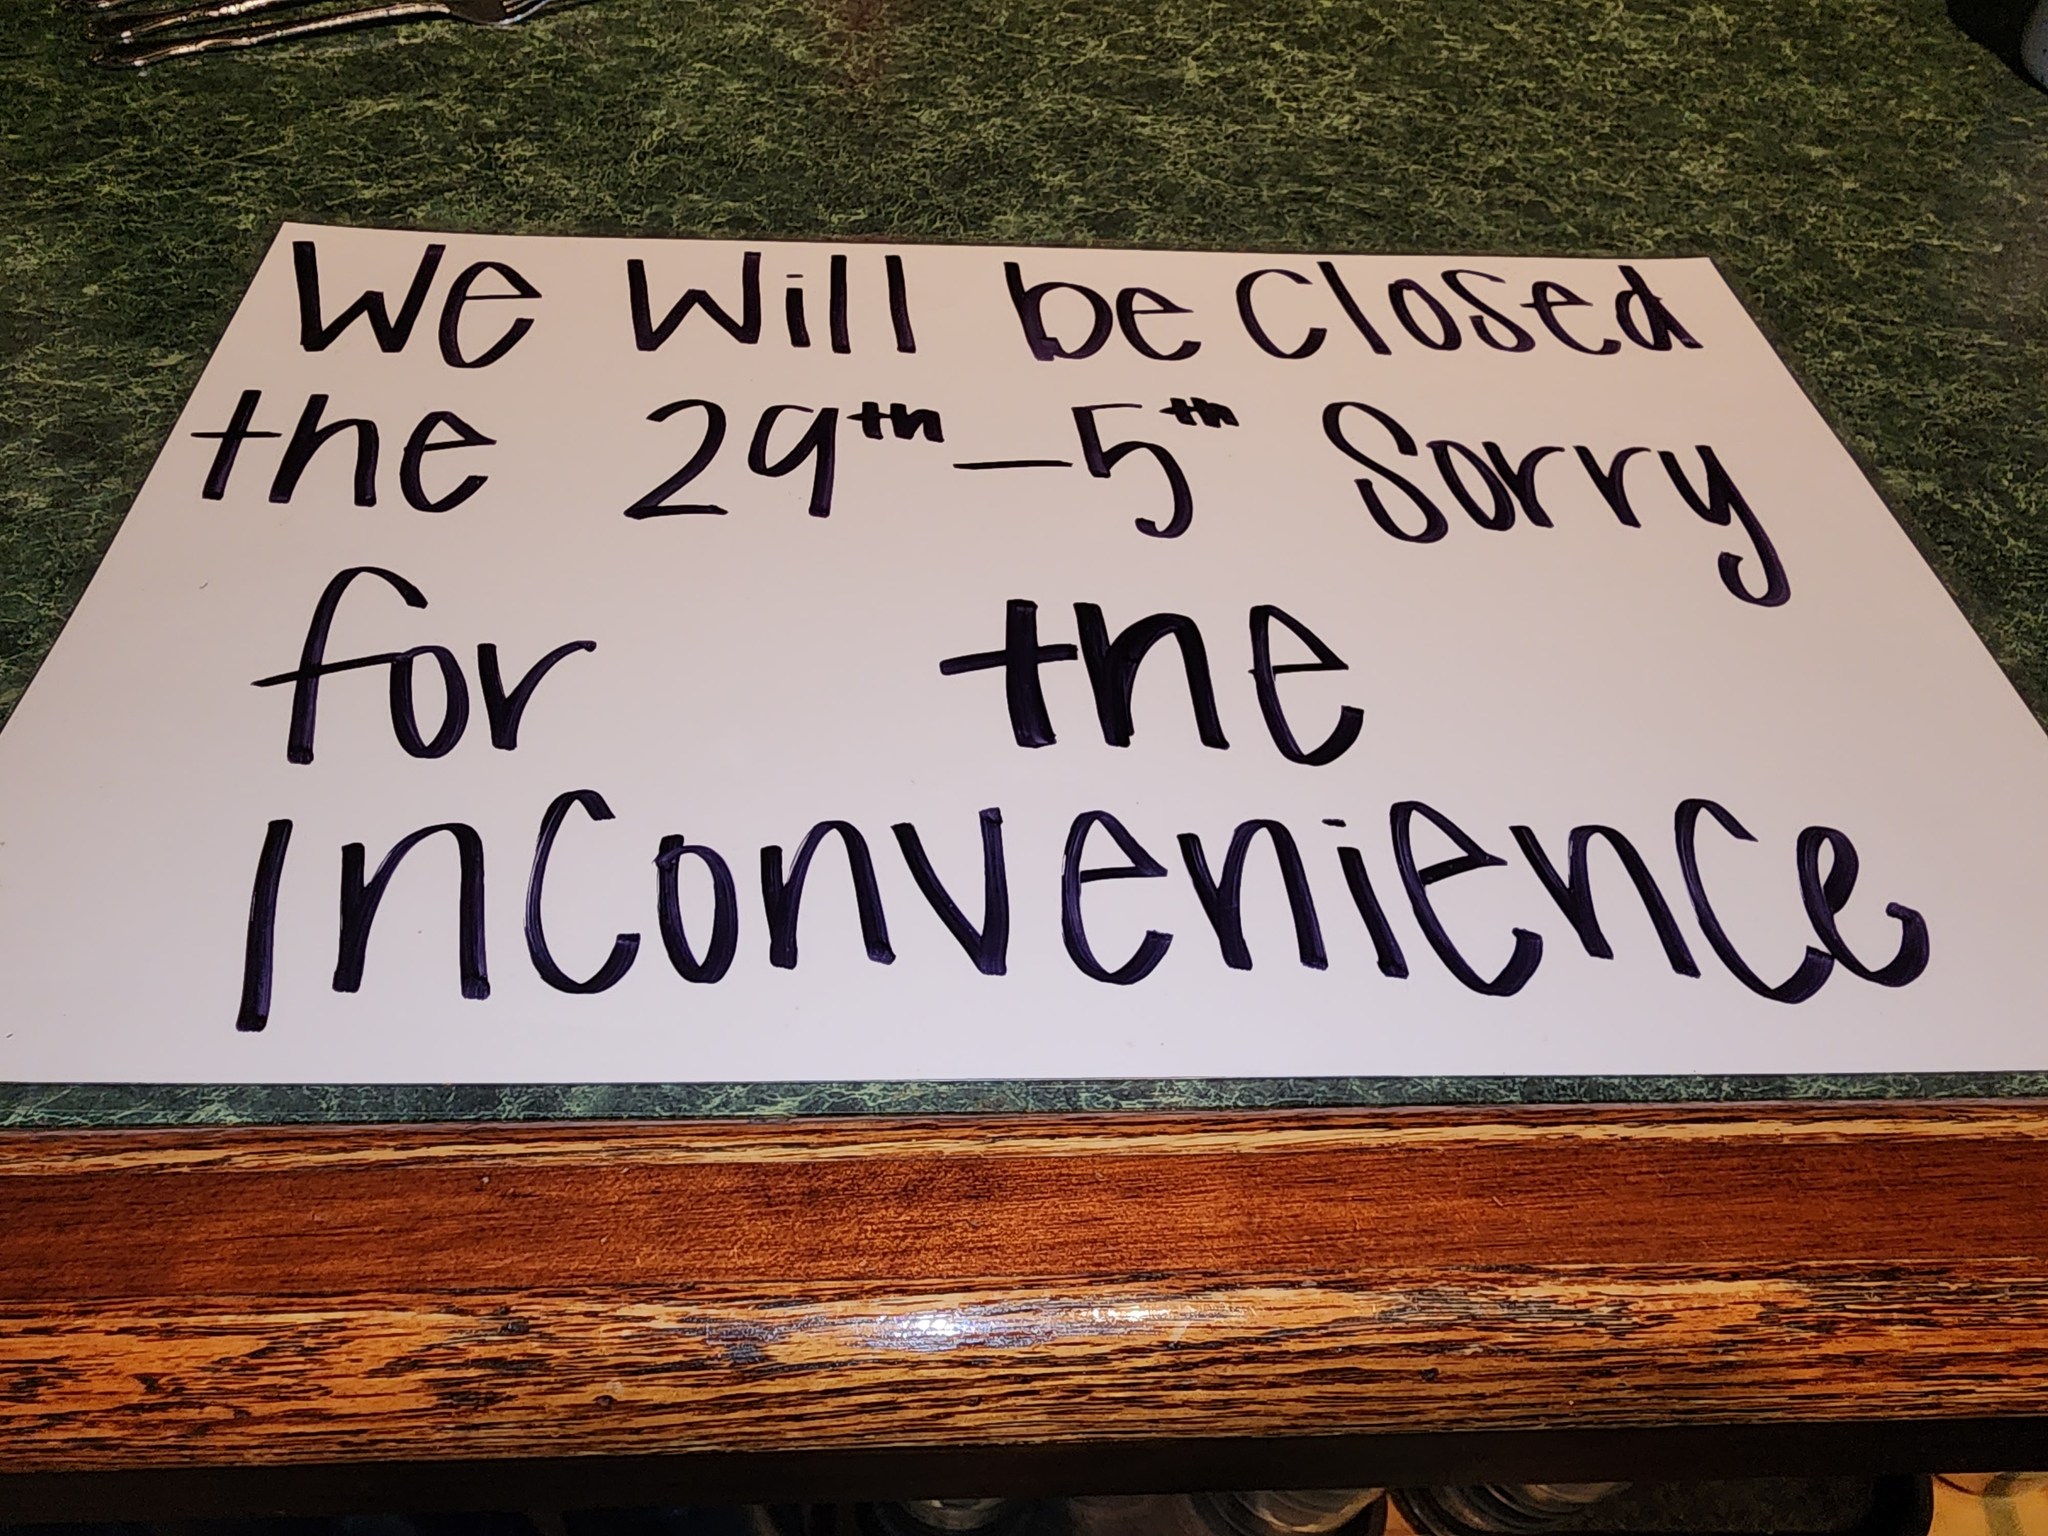 We will be closed
the 29th-5th Sorry
for the
Inconvenience